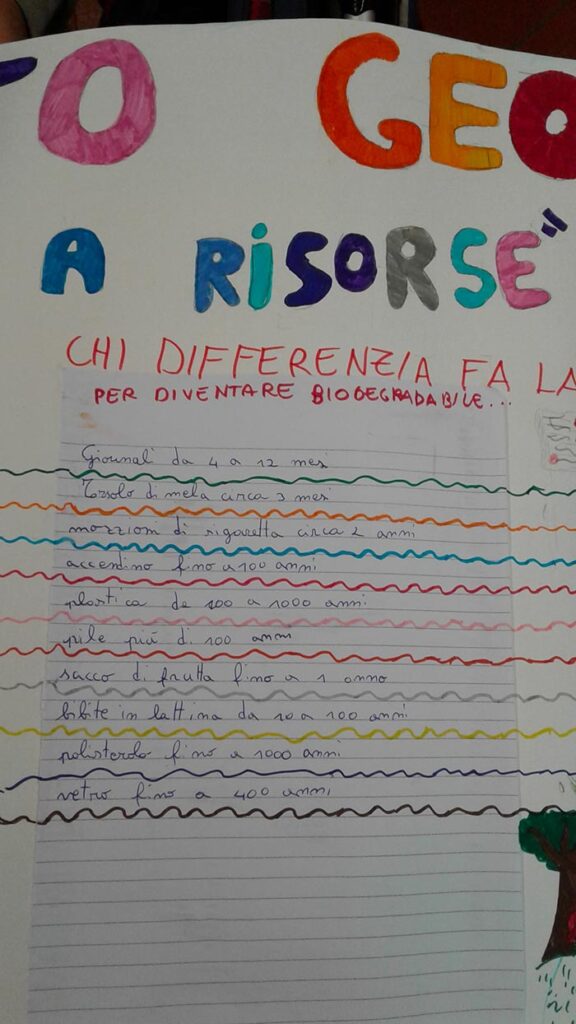 TO GEO
A RISORSE"
CHI DIFFERENZIA FA LA
PER DIVENTARE BIODEGRADABILE...
Giornali da 4 a 12 mesi
Torsolo di mela circa 3 mesi
mozzioni di sigaretta circa 2 anni
accendino fino a 100 anni
plastica da 100 a 1000 anni
pile piú di 100 anni
succo di frutta fino a 1 anno
bibite in lattina da 10 a 100 anni
polisterolo fino a 1000 anni
vetro fino a 400 anni